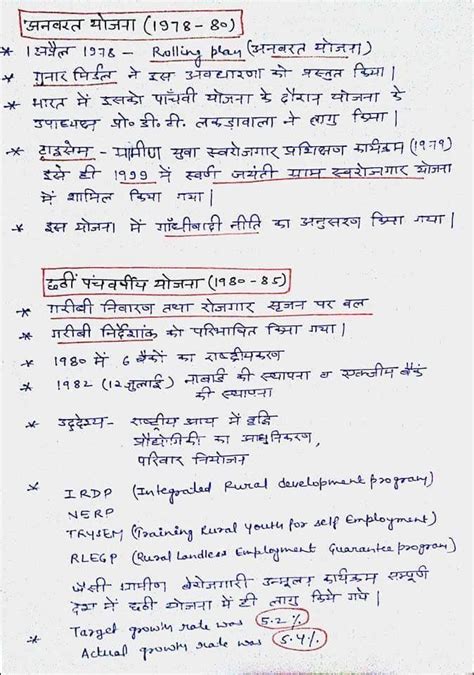 अनवरत योजना (1978-80)
* 1 अप्रैल 1978 - Rolling play (अनवरत योजना)
* गुनार मिर्डल ने इस अवधारणा को प्रस्तुत किया।
* भारत में इसको पाँचवी योजना के दौरान योजना के
उपाध्यक्ष प्रो. डी. टी. लकड़ावाला ने लागु किया।
* ट्राइसेम - ग्रामीण युवा स्वरोजगार प्रशिक्षण कार्यक्रम (1979)
इसे ही 1999 में स्वर्ण जयंती ग्राम स्वरोजगार योजना
में शामिल किया गया।
* इस योजना में गाँधीवादी नीति का अनुसरण किया गया।
छठी पंचवर्षीय योजना (1980-85)
* गरीबी निवारण तथा रोजगार सृजन पर बल
* गरीबी निर्देशांक को परिभाषित किया गया।
* 1980 में 6 बैंको का राष्ट्रीयकरण
* 1982 (12 जुलाई) नाबार्ड की स्थापना व एक्जीम बैंक
की स्थापना
* उद्देश्य- राष्ट्रीय आय में वृद्धि
प्रौद्योगिकी का आधुनिकरण,
परिवार नियोजन
* IRDP (Integrated Rural development program)
NERP
TRYSEM (Training Rural Youth for self Employment)
RLEGP (Rural Landless Employment Guarantee program)
जैसी ग्रामीण बेरोजगारी उन्मूलन कार्यक्रम सम्पूर्ण
देश में छठी योजना में ही लागु किये गये।
Target growth rate was 5.2%
* Actual growth rate was 5.4%